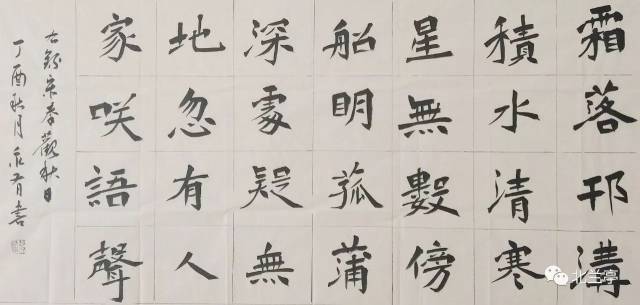 霜落邗溝
積水清寒
星無數傍
船眀菰蒲
深處疑無
地忽有人
家咲語聲
右錄宋秦觀秋日
丁酉秋月書
北兰亭